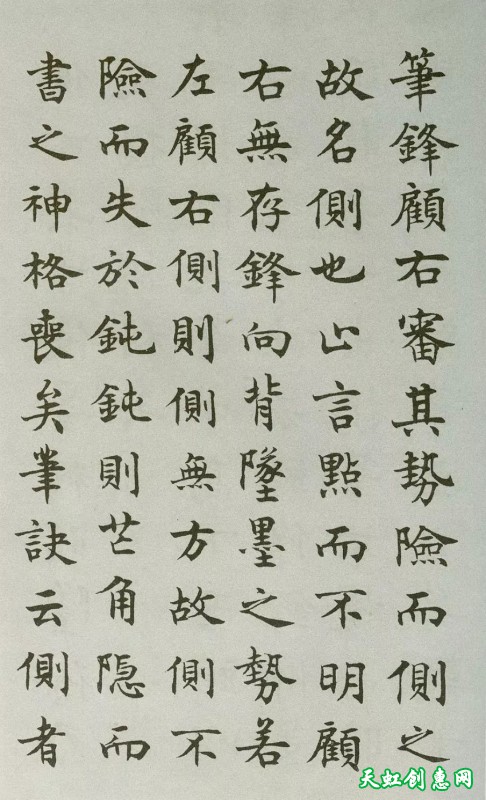 筆鋒顧右審其勢險而側之
故名側也止言點而不明顧
右無存鋒向背墜墨之勢若
左顧右側則側無方故側不
險而失於鈍鈍則芒角隱而
書之神格喪矣筆訣云側者
天虹创惠网